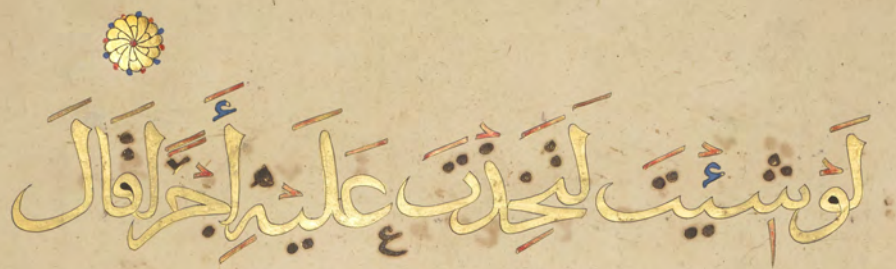 لَوْ شِئْتَ لَتَخِذْتَ عَلَيْهِ أَجْرًا قَالَ